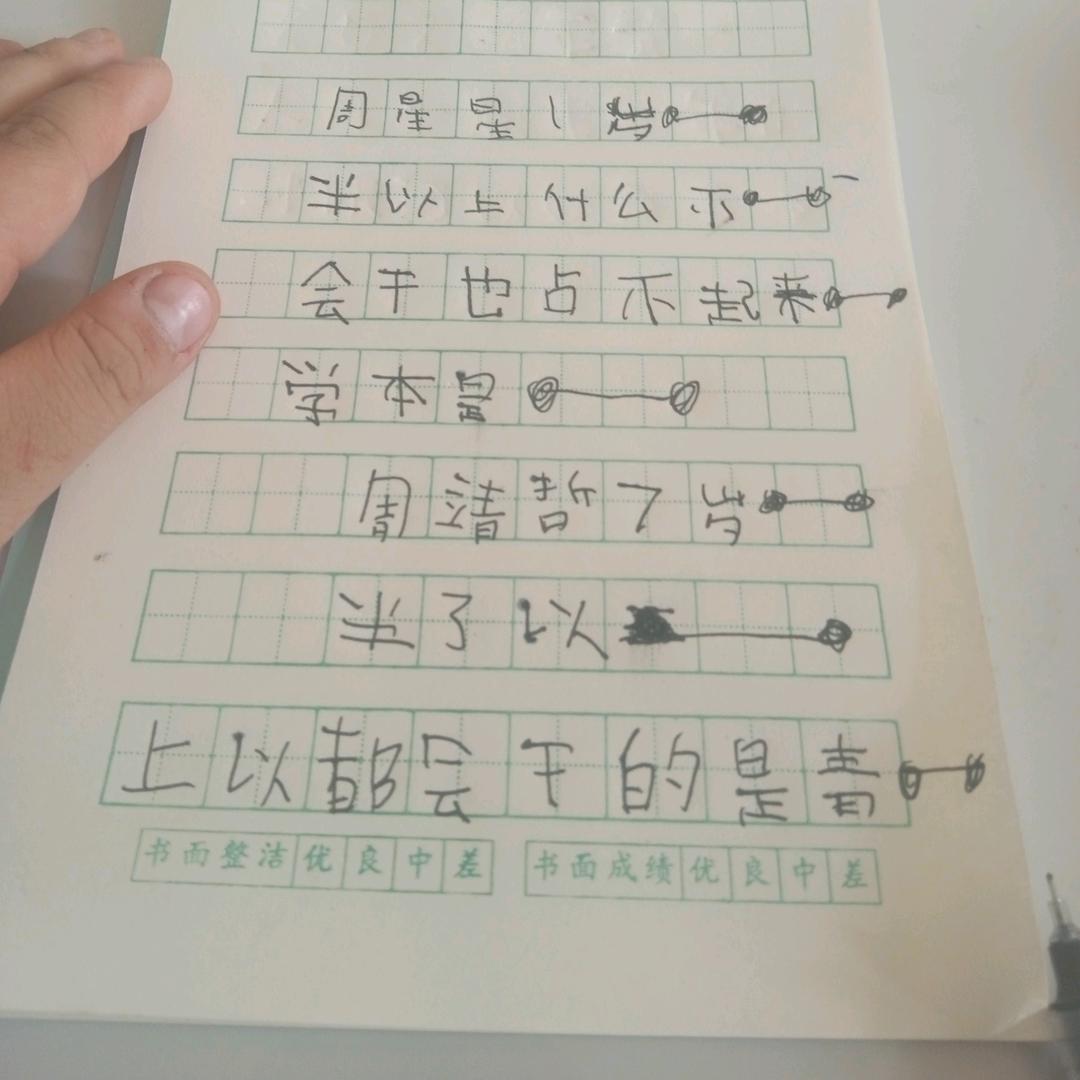 周星星一岁
半以上什么不
会干也占不起来
学本冒
周清哲7岁
半了以
上以都会干的是青
书面整洁 优 良 中 差 书面成绩 优 良 中 差